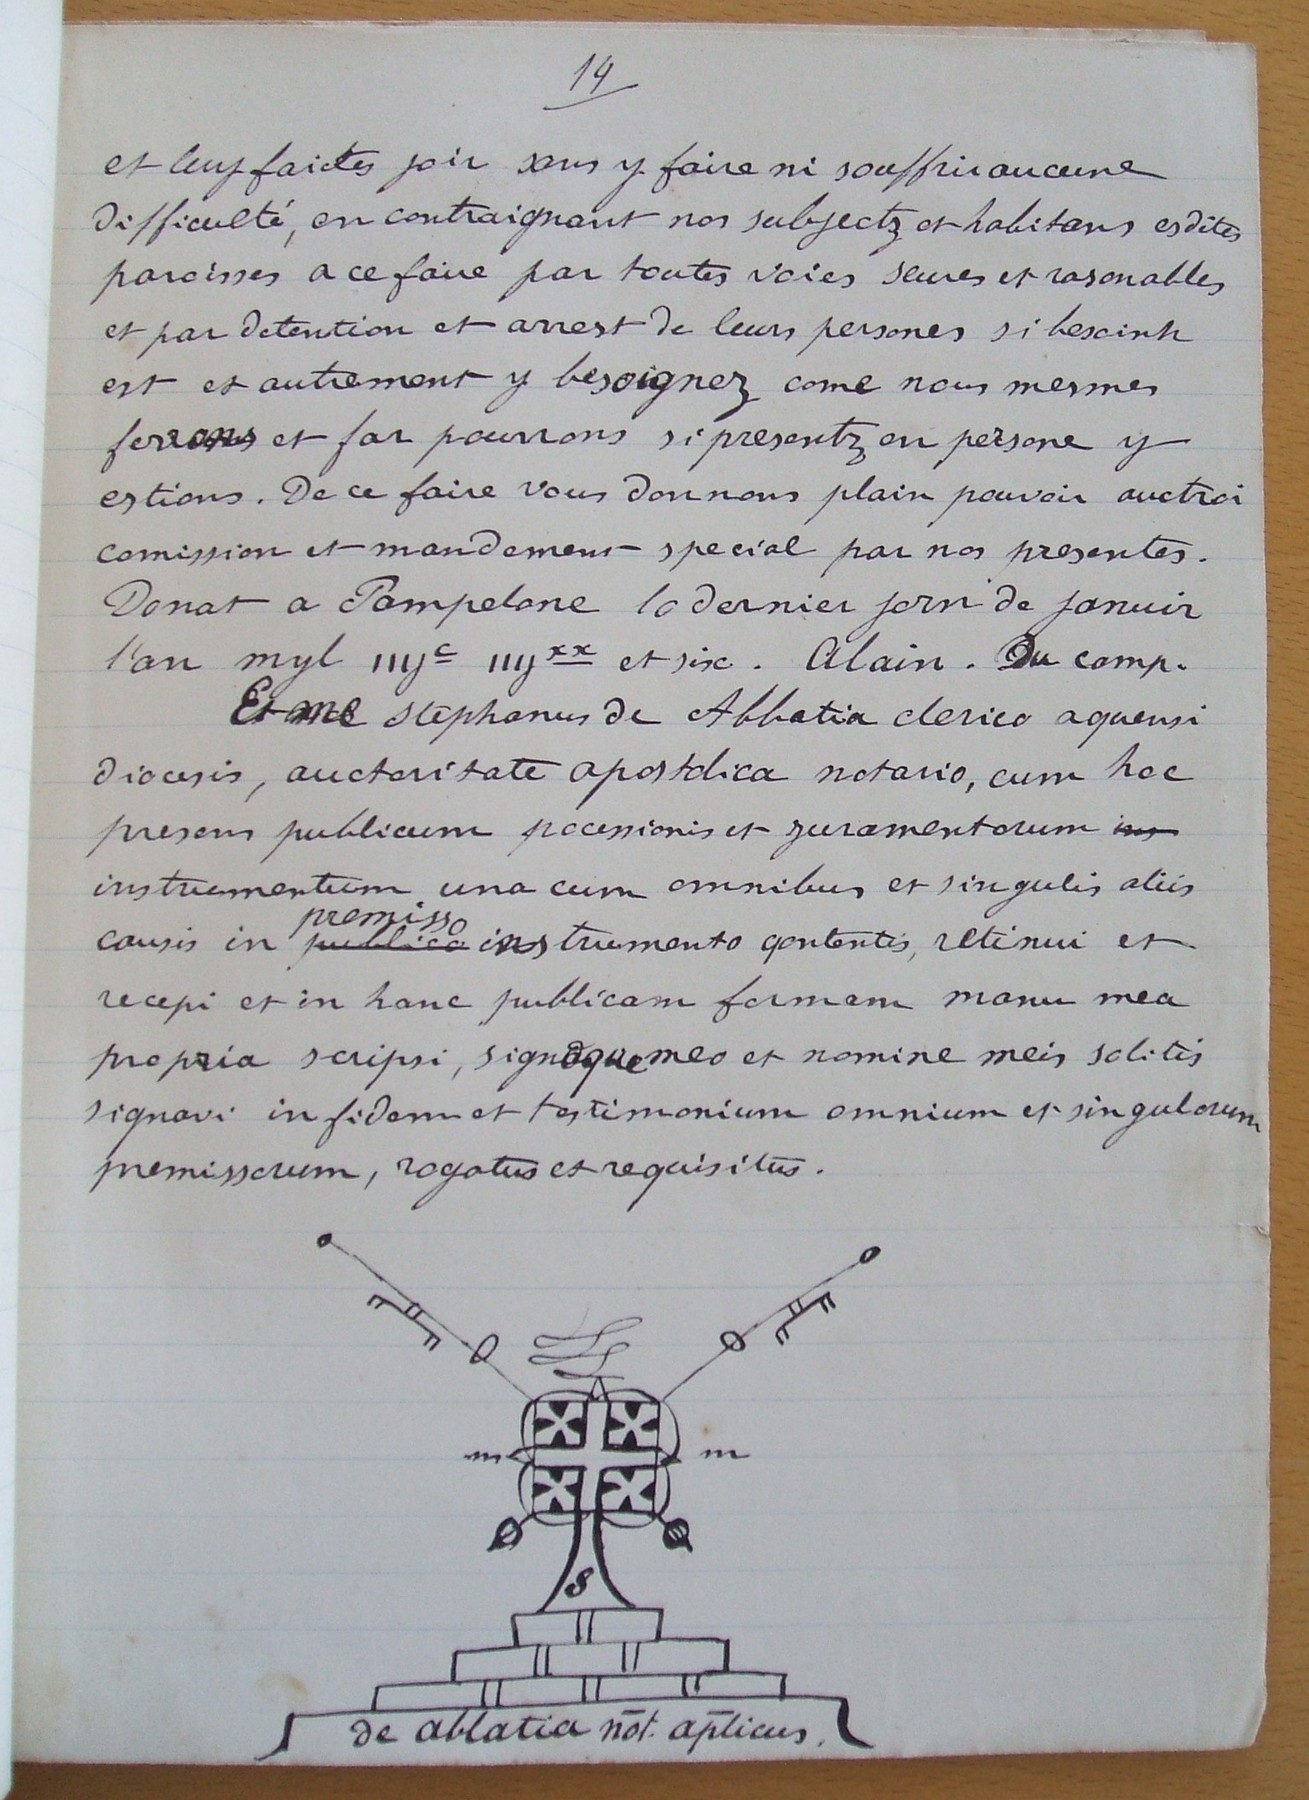 14
et leuy faictes joir sens y faire ni souffrir aucune
difficulté, en contraignant nos subjectz et habitans esdites
paroisses a ce faire par toutes voies seures et rasonables
et par detention et arrest de leurs persones si besoinh
est et autrement y besoignez come nous mesmes
ferrons et far pourrons si presentz en persone y
estions. De ce faire vous donnons plain pouvoir auctroi
comission et mandement special par nos presentes.
Donat a Pampelone lo dernier jorn de januir
l'an myl iiijc iiijxx et six. Alain. Du camp.
Et me Stephanus de Abbatia clerico aquensi
diocesis, auctoritate apostolica notario, cum hoc
presens publicum pocessionis et juramentorum ins
instrumentum una cum omnibus et singulis aliis
premisso
causis in publico instrumento contentis, retinui et
recepi et in hanc publicam formam manu mea
propria scripsi, signoque meo et nomine meis solitis
signavi in fidem et testimonium omnium et singulorum
premissorum, rogatus et requisitus.
m m
S
de abbatia not. aplicus.